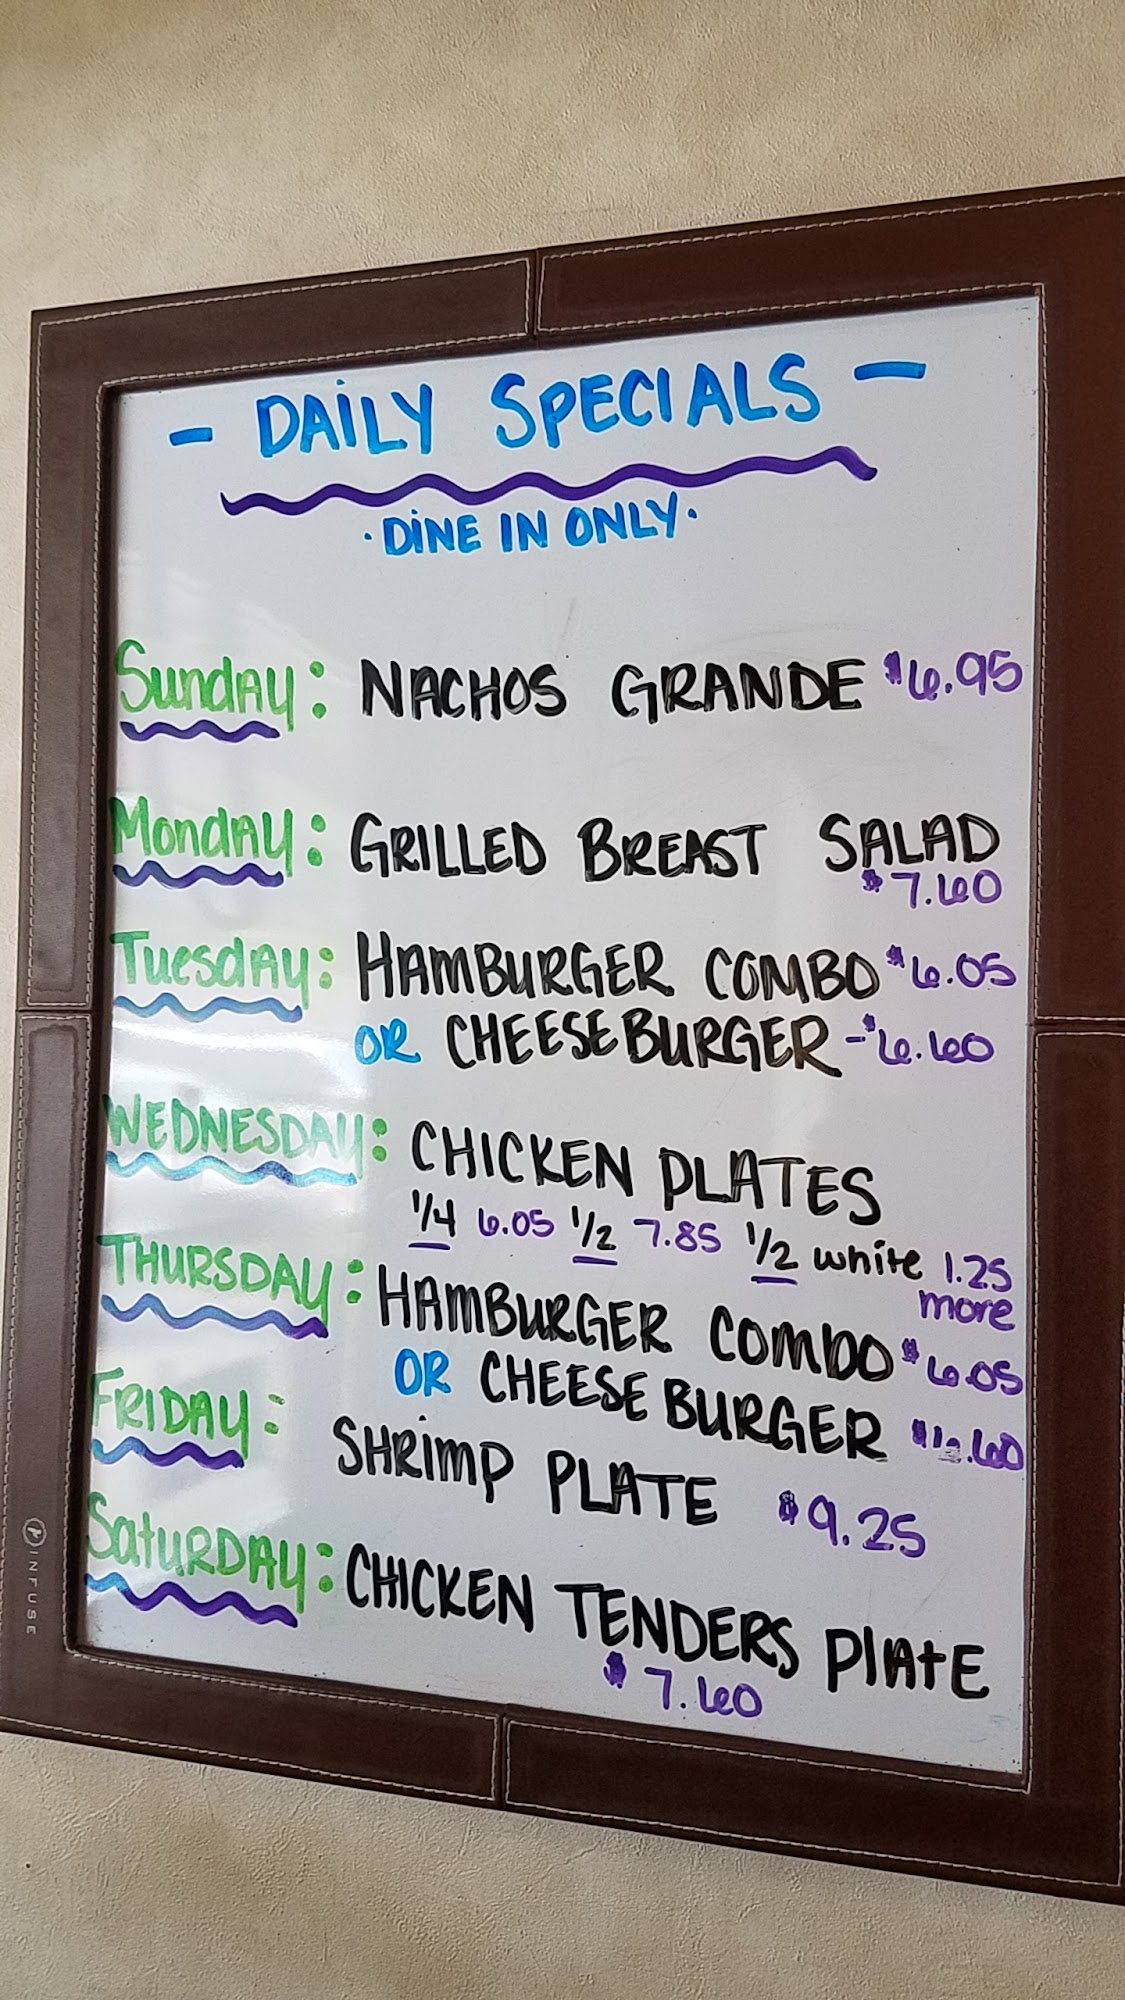 - DAILY SPECIALS -
· DINE IN ONLY ·
Sunday: NACHOS GRANDE $6.95
Monday: GRILLED BREAST SALAD
$7.60
Tuesday: HAMBURGER COMBO $6.05
OR CHEESEBURGER - $6.60
WEDNESDAY: CHICKEN PLATES
1/4 6.05 1/2 7.85 1/2 white 1.25
more
THURSDAY: HAMBURGER COMBO $6.05
OR CHEESEBURGER $6.60
FRIDAY: SHRIMP PLATE $9.25
SaturDAY: CHICKEN TENDERS PlAtE
$7.60
INFUSE